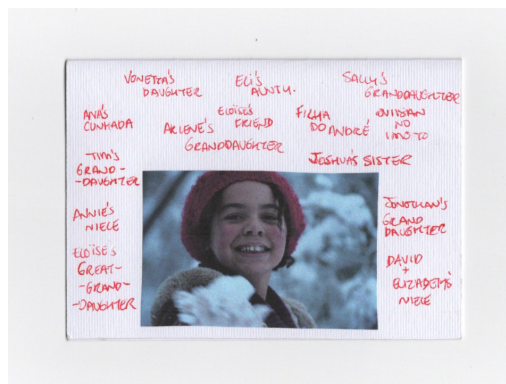 VONETTA'S
DAUGHTER
ELI'S
AUNTY.
SALLY'S
GRANDDAUGHTER
ANA'S
CUNHADA
ARLENE'S
GRANDDAUGHTER
ELOÏSE'S
FRIEND
FILHA
DO ANDRÉ
NO
JOSHUA'S SISTER
TIM'S
GRAND-
-DAUGHTER
ANNIE'S
NIECE
ELOÏSE'S
GREAT-
-GRAND-
-DAUGHTER
JONATHAN'S
GRAND
DAUGHTER
DAVID
+
ELIZABETH'S
NIECE